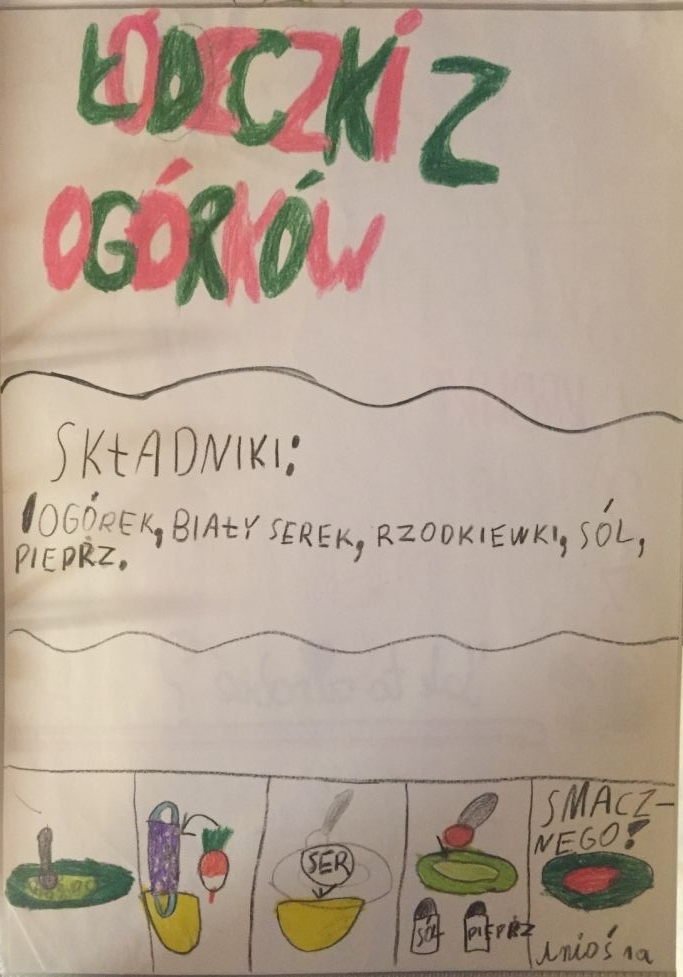 ŁÓDECZKI Z
OGÓRKÓW
SKŁADNIKI:
1 OGÓREK, BIAŁY SEREK, RZODKIEWKI, SÓL,
PIEPRZ.
SER
SÓL
PIEPRZ
SMACZ-
NEGO!